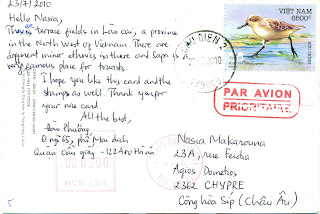 23/7/2010
Hello Nasia,
These terrace fields in Lào cai, a province
in the North West of Vietnam. There are
different minor ethnics in there and Sapa is a
very famous place for tourists.
I hope you like this card and the
stamps as well. Thank you for
your nice card.
All the best,
Quận Cầu giấy - 122400 Hà Nội
VIỆT NAM
6500đ
PAR AVION
PRIORITAIRE
Nasia Makarouna
23A, rue Feidia
Agios Dometios
2362 CHYPRE
Cộng hòa Síp (Châu Âu)